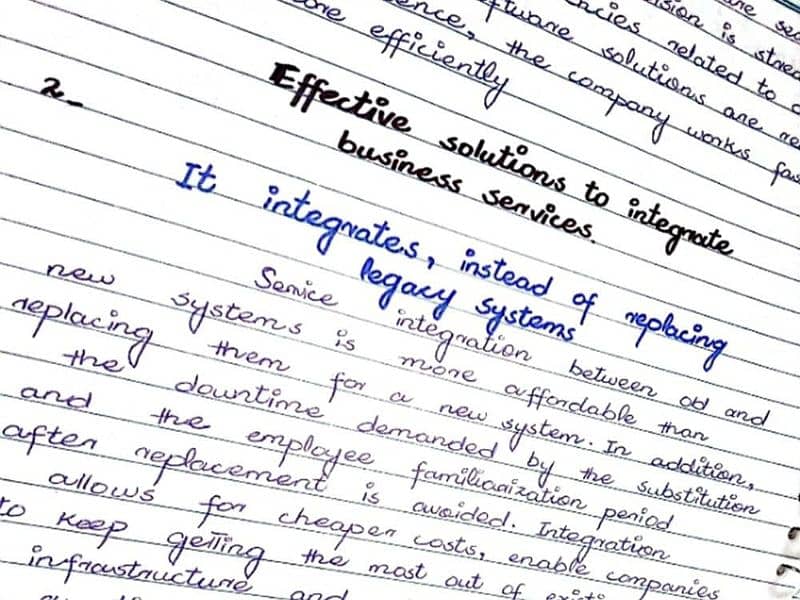 are sec
ision is stored
ncies related to
ftware solutions are re
ence, the company works fas
efficiently
2-
Effective solutions to integrate
business services.
It integrates, instead of replacing
legacy systems
Service integration between old and
new systems is more affordable than
replacing them for a new system. In addition,
the downtime demanded by the substitution
and the employee familiarization period
after replacement is avoided. Integration
allows for cheaper costs, enable companies
to keep getting the most out of
infraustructure and